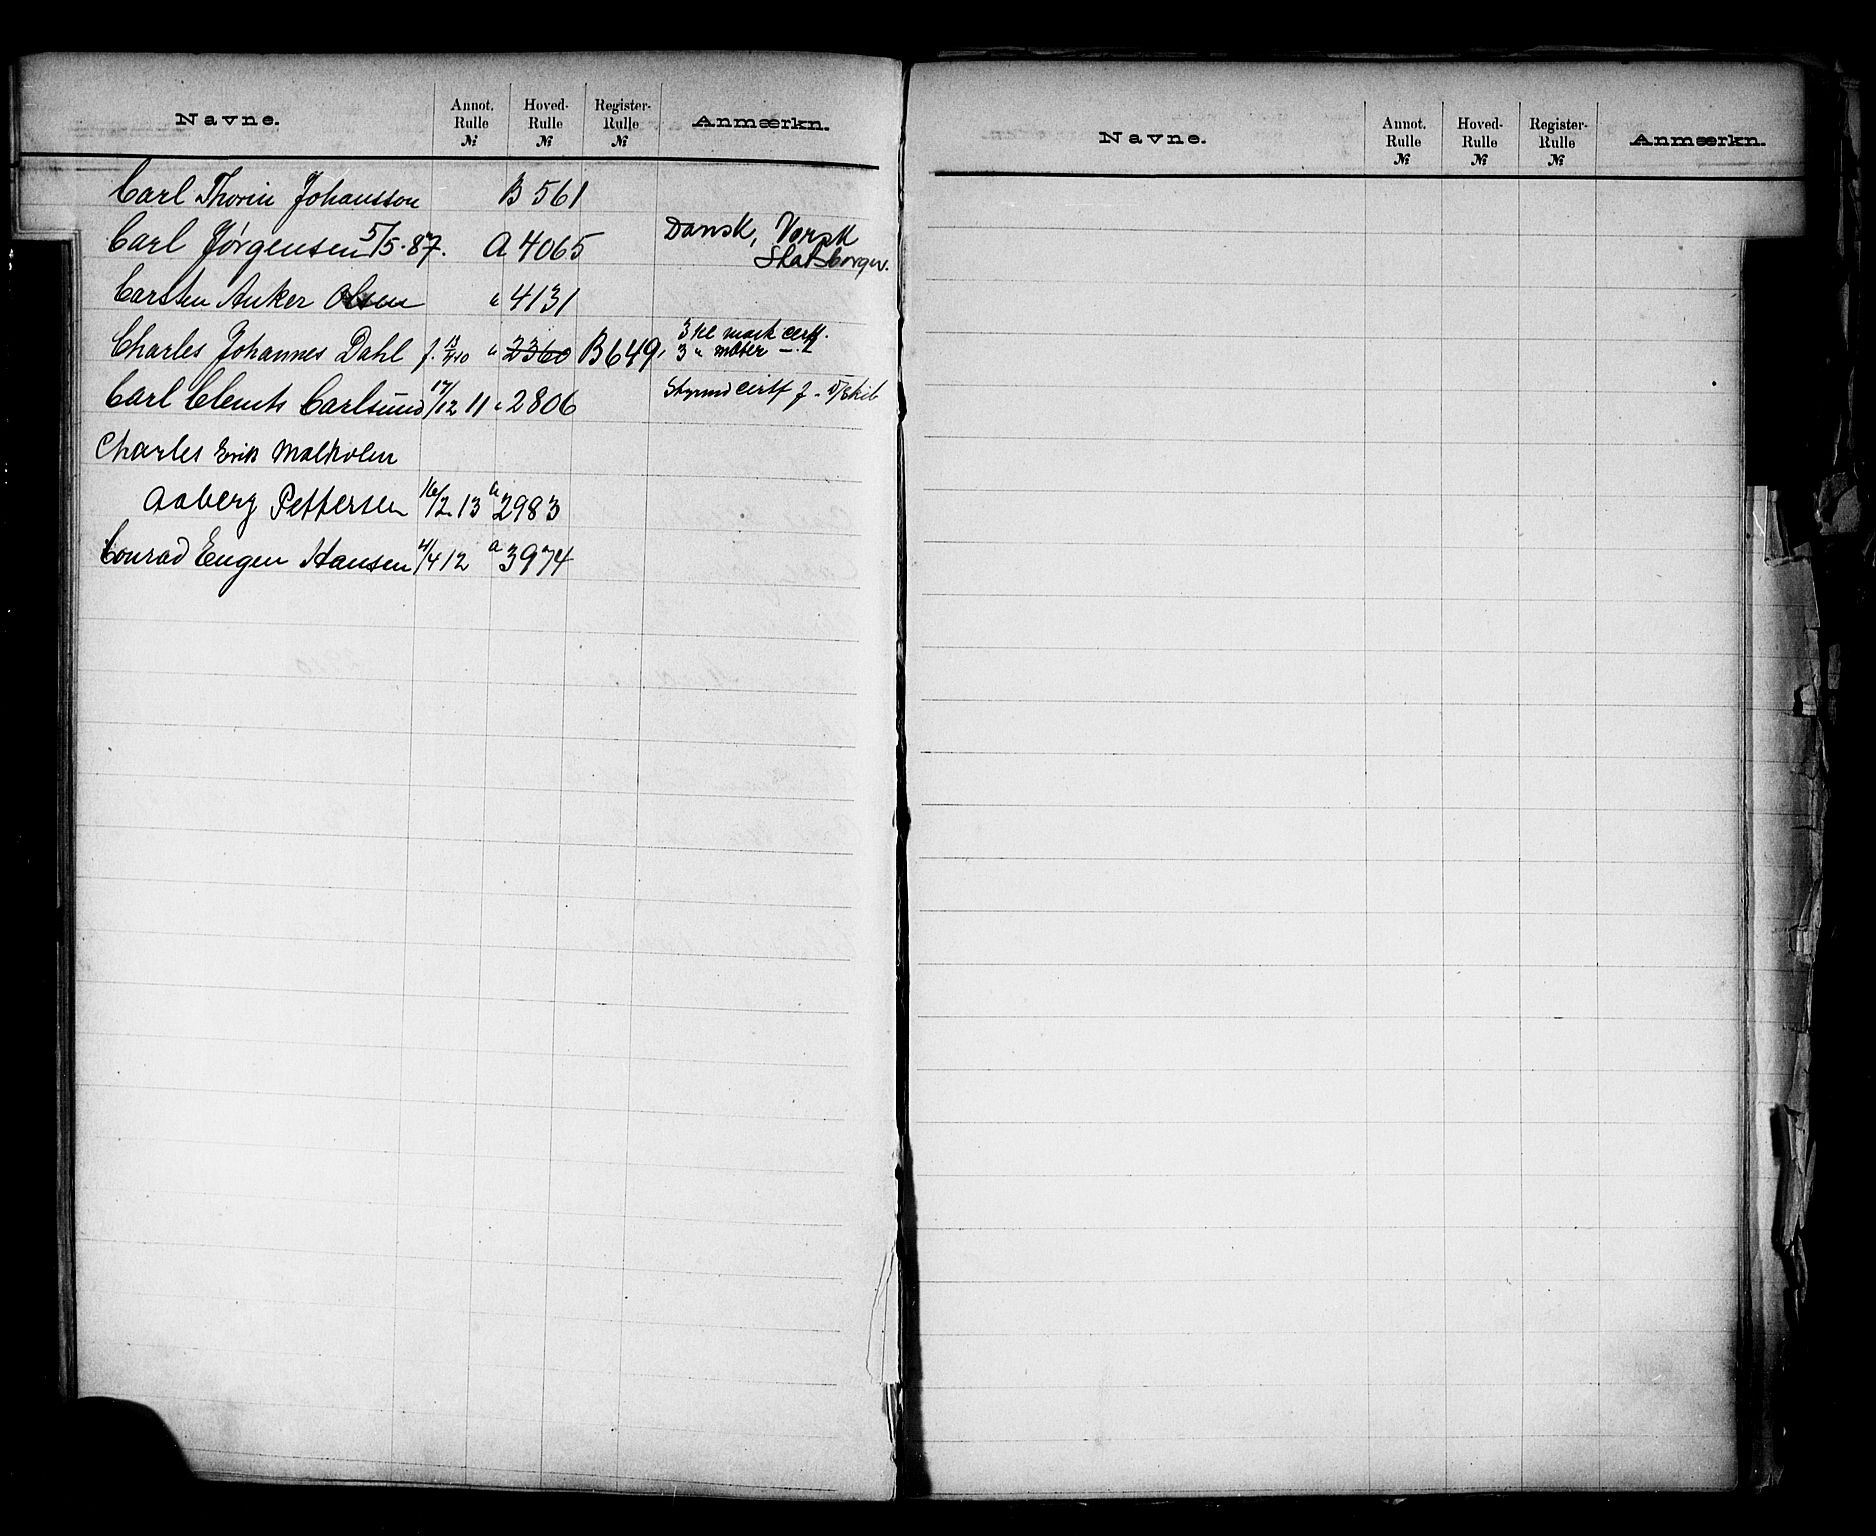 Navne. Annot. Rulle № Hoved-Rulle № Register-Rulle № Anmærkn.
Carl Thorin Johansson B 561
Carl Jørgensen 5/5-87. A 4065 Dansk, Norsk
Statsborger.
Carsten Anker Olsen " 4131
Charles Johannes Dahl f. " 2360 B 649, 3 kl mask cert.
3 " "
Carl Clemts Carlsund 17/12 11 " 2806
Charles Erik Malkolm
Aaberg Pettersen 16/2 13 a 2983
Conrad Eugen Hansen 21/4 12 a 3974
Navne. Annot. Rulle № Hoved-Rulle № Register-Rulle № Anmærkn.